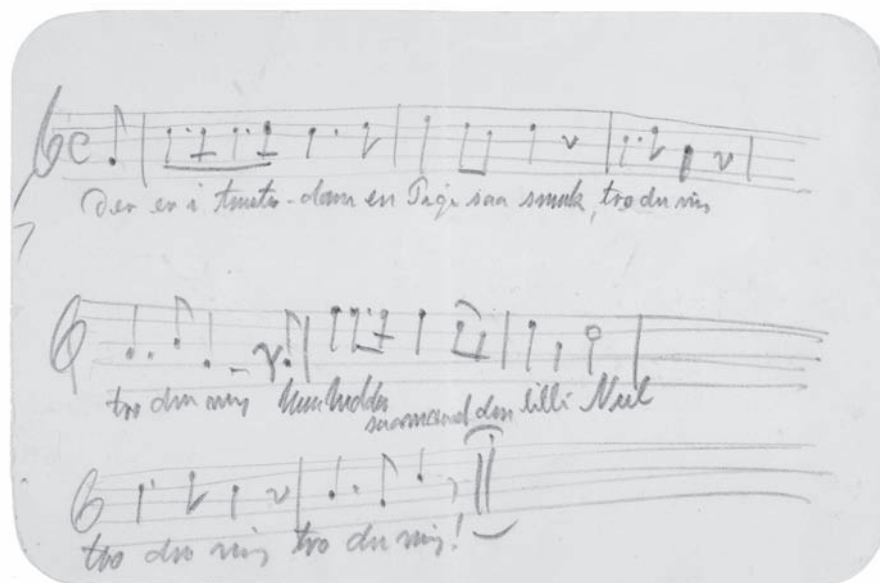 Der er i Amster-dam en Pige saa smuk, tro du mig
tro du mig Hun hedder saamænd den lille Neel
tro du mig tro du mig!